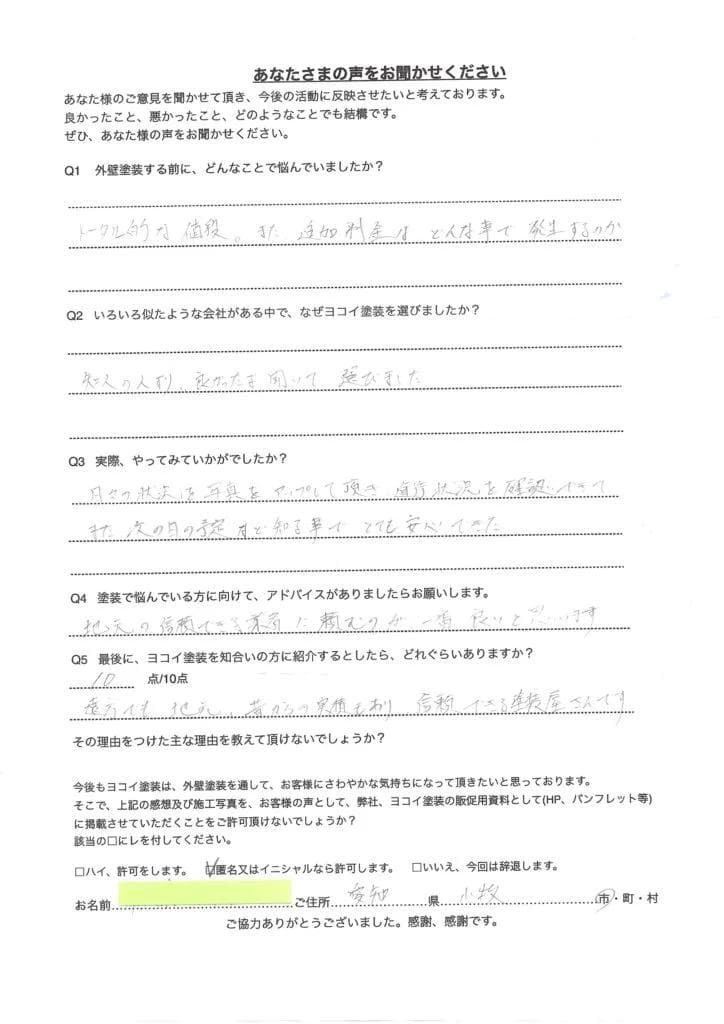 あなたさまの声をお聞かせください
あなた様のご意見を聞かせて頂き、今後の活動に反映させたいと考えております。
良かったこと、悪かったこと、どのようなことでも結構です。
ぜひ、あなた様の声をお聞かせください。
Q1 外壁塗装する前に、どんなことで悩んでいましたか？
トータル的な値段。また 追加料金は どんな事で 発生するのか
Q2 いろいろ似たような会社がある中で、なぜヨコイ塗装を選びましたか？
知人の人より、良かったと聞いて 選びました
Q3 実際、やってみていかがでしたか？
日々の状況を写真をアップして頂き 進行状況を確認できて
また 次の日の予定など知る事で とても安心できた
Q4 塗装で悩んでいる方に向けて、アドバイスがありましたらお願いします。
地元の信頼できる業者に頼むのが 一番 良いと思います
Q5 最後に、ヨコイ塗装を知合いの方に紹介するとしたら、どれぐらいありますか？
10 点/10点
でも 地元、昔からの実積もあり 信頼できる塗装屋さんです
その理由をつけた主な理由を教えて頂けないでしょうか？
今後もヨコイ塗装は、外壁塗装を通して、お客様にさわやかな気持ちになって頂きたいと思っております。
そこで、上記の感想及び施工写真を、お客様の声として、弊社、ヨコイ塗装の販促用資料として(HP、パンフレット等)
に掲載させていただくことをご許可頂けないでしょうか？
該当の□にレを付してください。
□ハイ、許可をします。 ☑匿名又はイニシャルなら許可します。 □いいえ、今回は辞退します。
お名前 ご住所 愛知 県 小牧 市・町・村
ご協力ありがとうございました。感謝、感謝です。